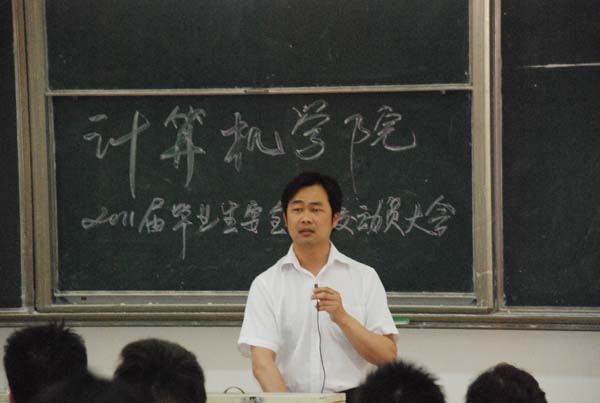 计算机学院
2011届毕业生安全 动员大会